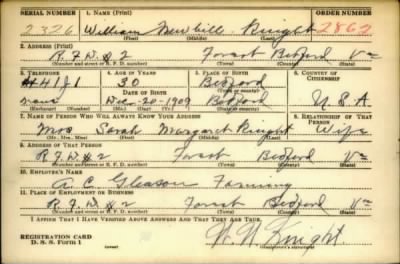 SERIAL NUMBER 1. NAME (Print) ORDER NUMBER
2326 William Knight 2862
(First) (Middle) (Last)
2. ADDRESS (Print)
R.F.D. #2 Forest Bedford Va
(Number and street or R. F. D. number) (Town) (County) (State)
3. TELEPHONE 4. AGE IN YEARS 5. PLACE OF BIRTH 6. COUNTRY OF CITIZENSHIP
30 Bedford
DATE OF BIRTH (Town or county)
none Dec-20-1909 Bedford U.S.A.
(Exchange) (Number) (Mo.) (Day) (Yr.) (State or country)
7. NAME OF PERSON WHO WILL ALWAYS KNOW YOUR ADDRESS 8. RELATIONSHIP OF THAT PERSON
Mrs Sarah Margaret Knight Wife
(Mr., Mrs., Miss) (First) (Middle) (Last)
9. ADDRESS OF THAT PERSON
R.F.D. #2 Forest Bedford Va
(Number and street or R. F. D. number) (Town) (County) (State)
10. EMPLOYER'S NAME
A. C. Gleason Farming
11. PLACE OF EMPLOYMENT OR BUSINESS
R.F.D. #2 Forest Bedford Va
(Number and street or R. F. D. number) (Town) (County) (State)
I AFFIRM THAT I HAVE VERIFIED ABOVE ANSWERS AND THAT THEY ARE TRUE.
REGISTRATION CARD
D. S. S. Form 1
Knight
(Registrant's signature)